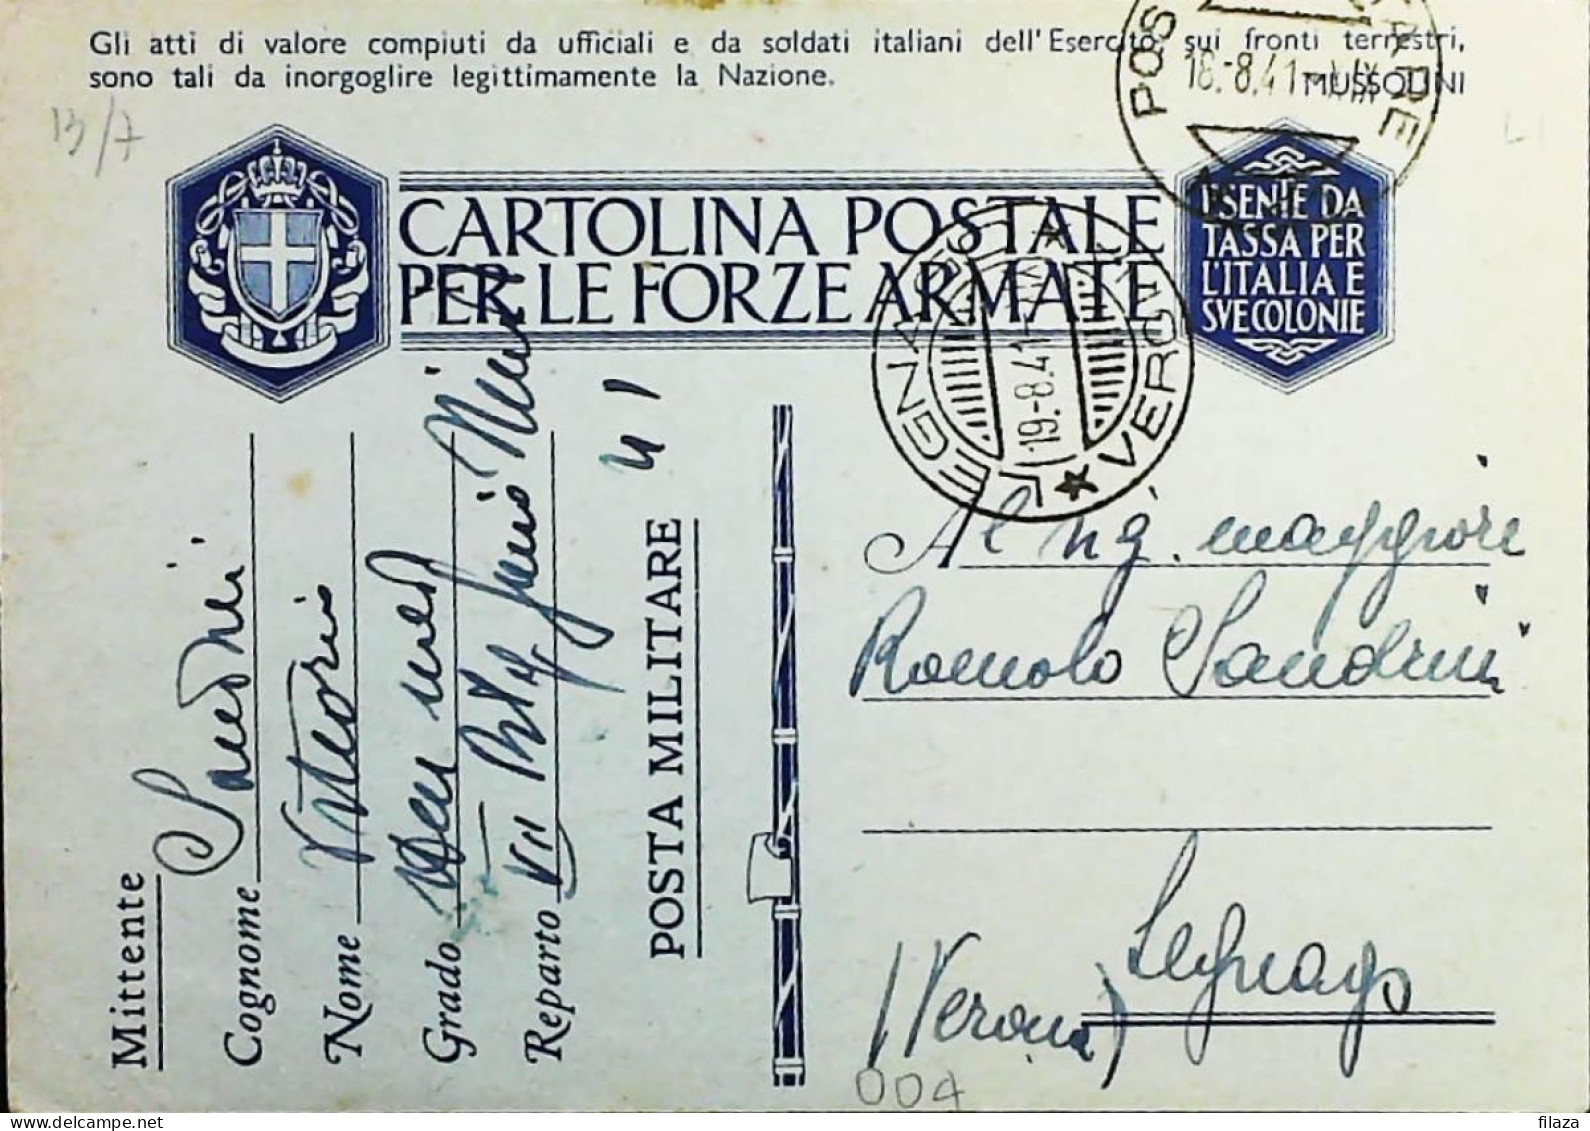 Gli atti di valore compiuti da ufficiali e da soldati italiani dell'Esercito, sui fronti terrestri,
sono tali da inorgoglire legittimamente la Nazione.
MUSSOLINI
13/7
POS ARE
18.-8.41-XIX
CARTOLINA POSTALE
PER LE FORZE ARMATE
ESENTE DA
TASSA PER
L'ITALIA E
SVE COLONIE
LEGNAGO ★ VERONA ★
19.-8.41-XIX
Mittente
Cognome Sandrini
Nome Vittorio
Grado
Reparto VII Btg Genio
POSTA MILITARE 41
Al Sig. maggiore
Romolo Sandrini
Legnago
(Verona)
004
filaza